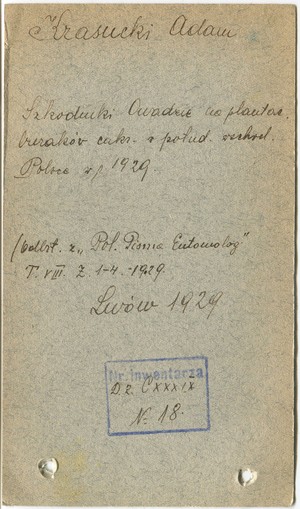 Krasucki Adam
Szkodniki Owadzie na plantac.
buraków cukr. w połud. wschod.
Polsce w r. 1929.
(odbit. z „Pol. Pisma Entomolog"
T. VIII. Z. 1-4. -1929.
Lwów 1929
Nr. inwentarza
Dz. CXXXIX
№ 18.